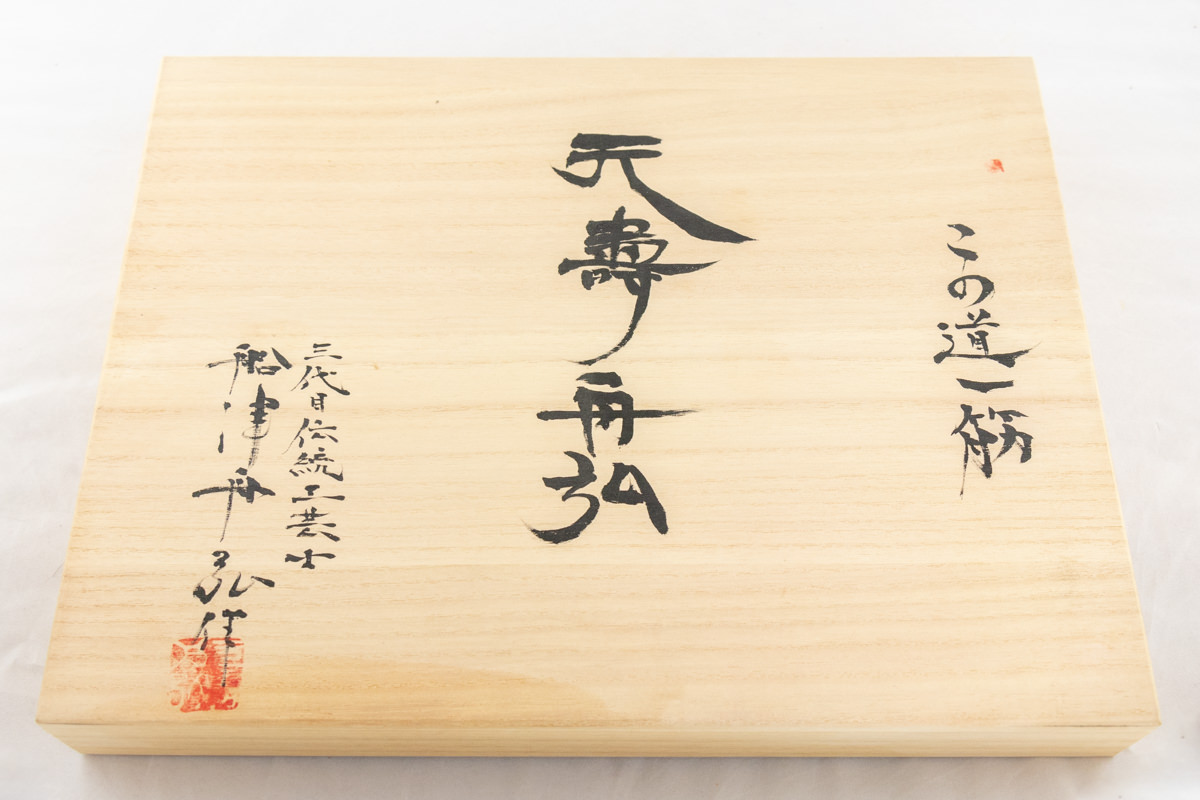 この道一筋
天壽舟弘
三代目伝統工芸士
船津舟弘作